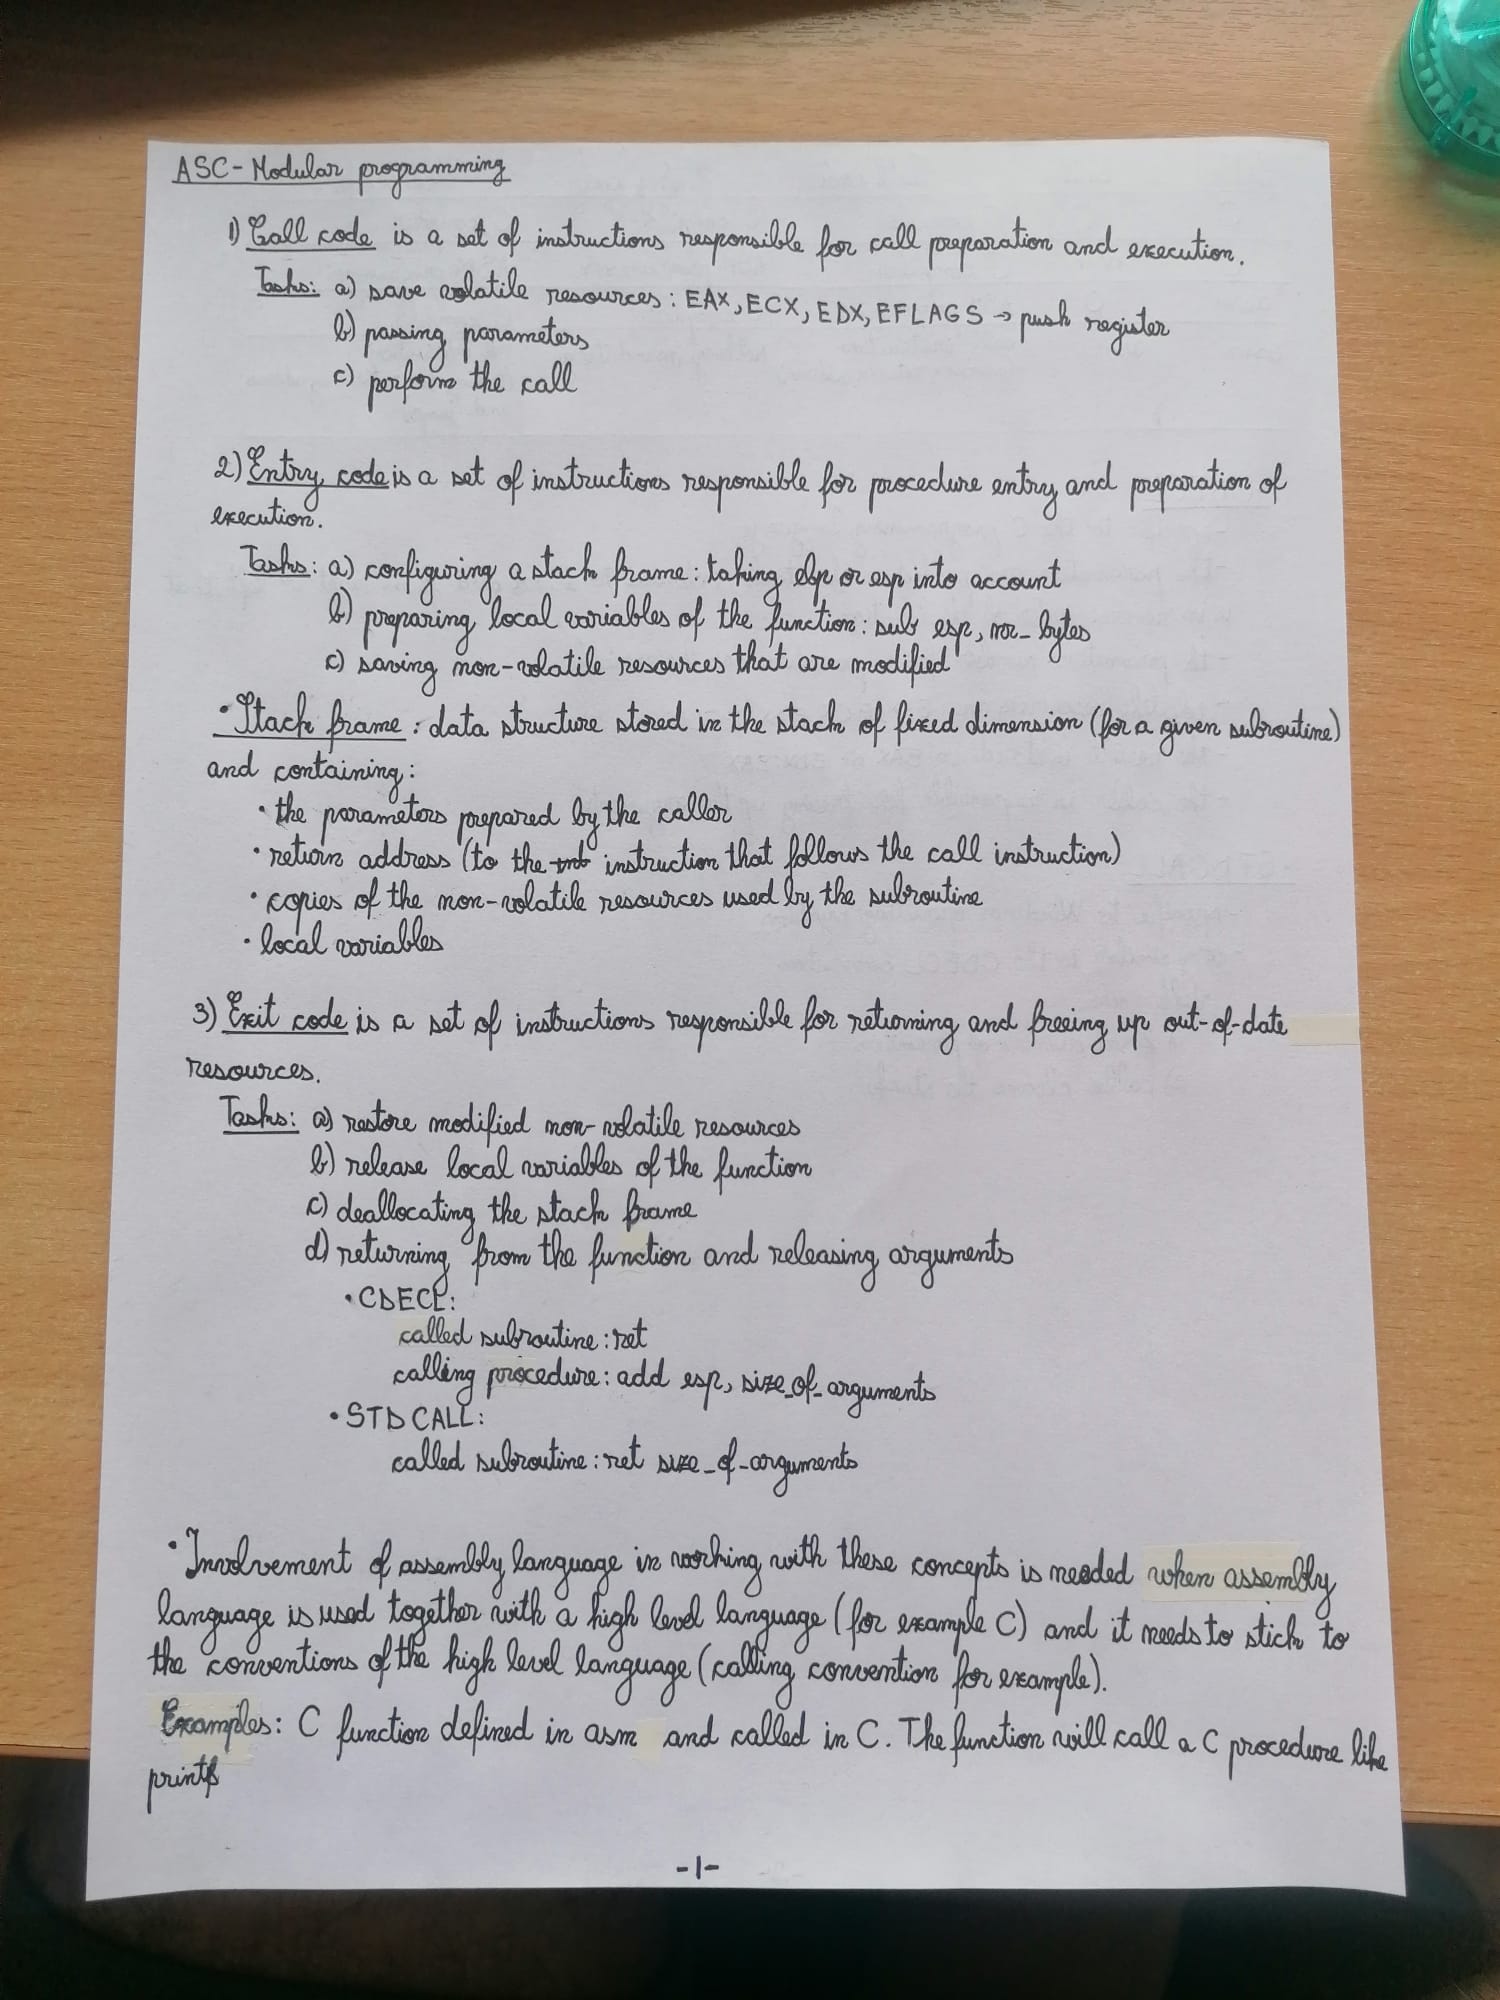 ASC - Modular programming
1) Call code is a set of instructions responsible for call preparation and execution.
Tasks: a) save volatile resources: EAX, ECX, EDX, EFLAGS → push register
b) passing parameters
c) perform the call
2) Entry code is a set of instructions responsible for procedure entry and preparation of
execution.
Tasks: a) configuring a stack frame: taking ebp or esp into account
b) preparing local variables of the function: sub esp, nr_bytes
c) saving non-volatile resources that are modified
• Stack frame: data structure stored in the stack of fixed dimension (for a given subroutine)
and containing:
• the parameters prepared by the caller
• return address (to the instruction that follows the call instruction)
• copies of the non-volatile resources used by the subroutine
• local variables
3) Exit code is a set of instructions responsible for returning and freeing up out-of-date
resources.
Tasks: a) restore modified non-volatile resources
b) release local variables of the function
c) deallocating the stack frame
d) returning from the function and releasing arguments
• CDECL:
called subroutine: ret
calling procedure: add esp, size_of_arguments
• STDCALL:
called subroutine: ret size_of_arguments
• Involvement of assembly language in working with these concepts is needed when assembly
language is used together with a high level language (for example C) and it needs to stick to
the conventions of the high level language (calling convention for example).
Examples: C function defined in asm and called in C. The function will call a C procedure like
printf
-1-